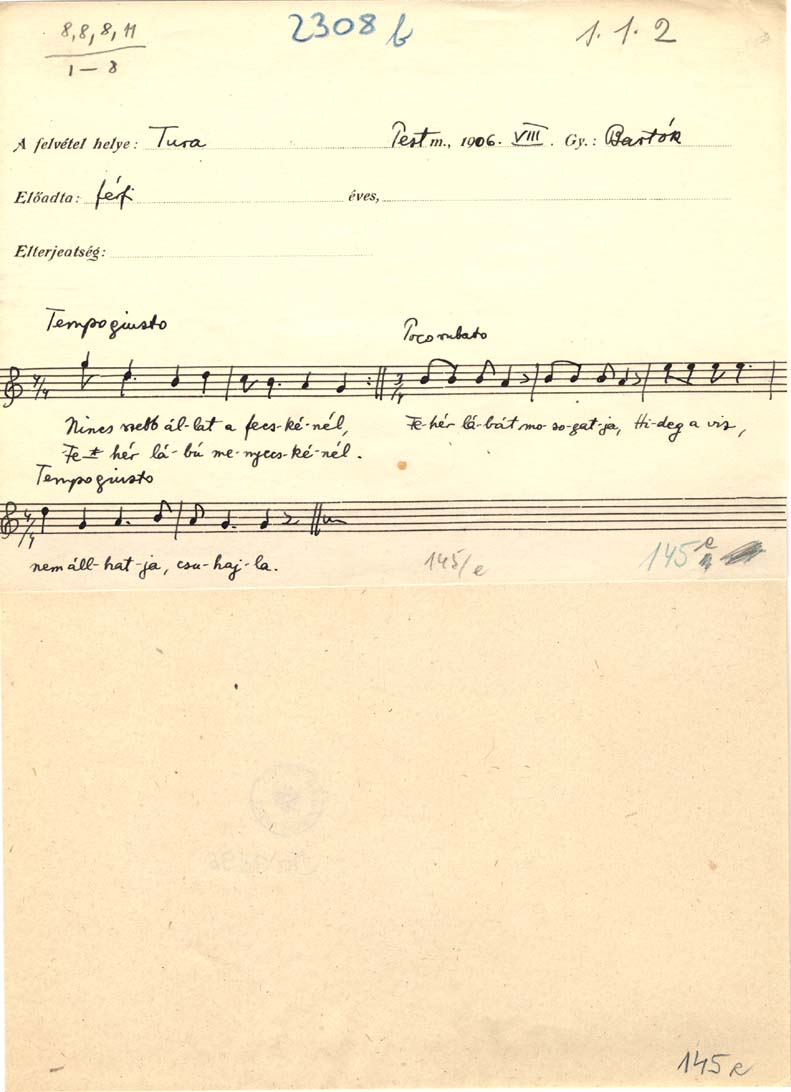 8, 8, 8, 11
1–8
2308 b
1. 1. 2
A felvétel helye: Tura Pest m., 1906. VIII. Gy.: Bartók
Előadta: férfi éves,
Elterjeatség:
Tempo giusto Poco rubato
4/4 3/4
Nincs szebb ál-lat a fecs-ké-nél, Fe-hér lá-bát mo-so-gat-ja, Hi-deg a viz,
Fe-hér lá-bú me-nyecs-ké-nél.
Tempo giusto
4/4
nem áll-hat-ja, csu-haj-la.
145/e 145 e
145 e